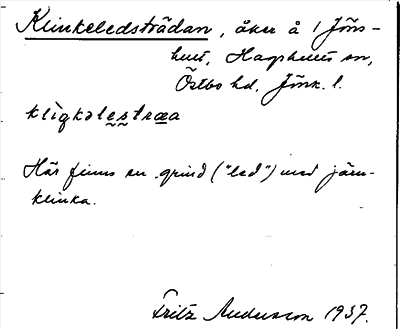 Klinkeledsträdan, åker å 1 Jöns-
hult, Hagshults sn,
Östbo hd. Jönk. l.
klìŋkəlestræa
Här finns en grind ("led") med järn-
klinka.
Fritz Andersson 1937.